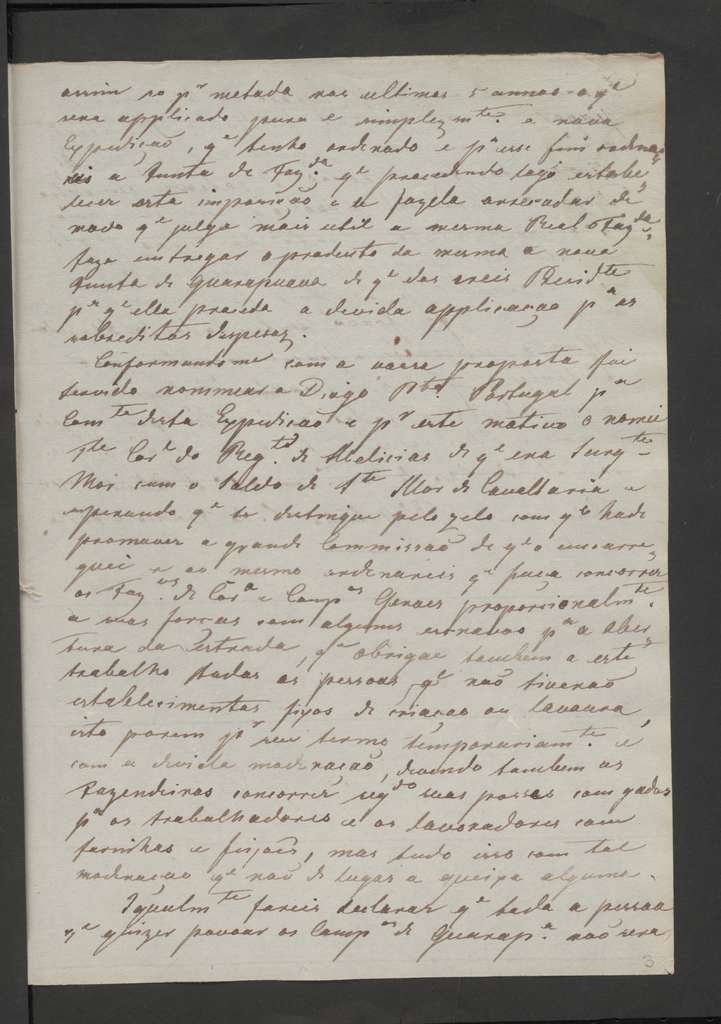 assim so pr metade nos ultimos 5 annos o qe
sera applicado pura e simplezmte a nova
Expedição, qe tenho ordenado e pa esse fim ordena
reis a Junta de Fazda qe procedendo logo estabe
lecer esta imposição e a fazela arrecadar de
modo qe julga mais util a mesma Real Fazda,
faça entregar o producto da mesma a nova
Junta de Guarapuava de qe vos sereis Presidte
pa qe ella proceda a devida applicação pa as
sobreditas despesas.
Conformandome com a vossa proposta fui
servido nommear a Diogo Pto Portugal pa
Comte desta Expedição e pr este motivo o nomeei
Te Corel do Regto de Melicias de qe era Sargto
Mor com o Soldo de Sto Mor de Cavallaria e
esperando qe se destingue pelo zelo com qe hade
promover a grande Commissão de qe o encarre
guei e ao mesmo ordenareis qe faça concorrer
os Fazos de Cora e Campos Geraes proporcionalmte
a suas forças com alguns escravos pa a Aber
tura da Estrada, qe obrigue tambem a este
trabalho a todas as pessoas qe não tiverão
estabelecimentos fixos de criação ou lavoura,
isto porem pr seu termo temporariamte e
com a devida moderação, devendo tambem os
Fazendeiros concorrer segdo suas posses com gados
pa os trabalhadores e os lavoradores com
farinhas e feijões, mas tudo isso com tal
moderação qe não de lugar a queixa alguma.
Igualmte fareis declarar qe toda a pessoa
qe quizer povoar os Campos de Guarapa não sera
3